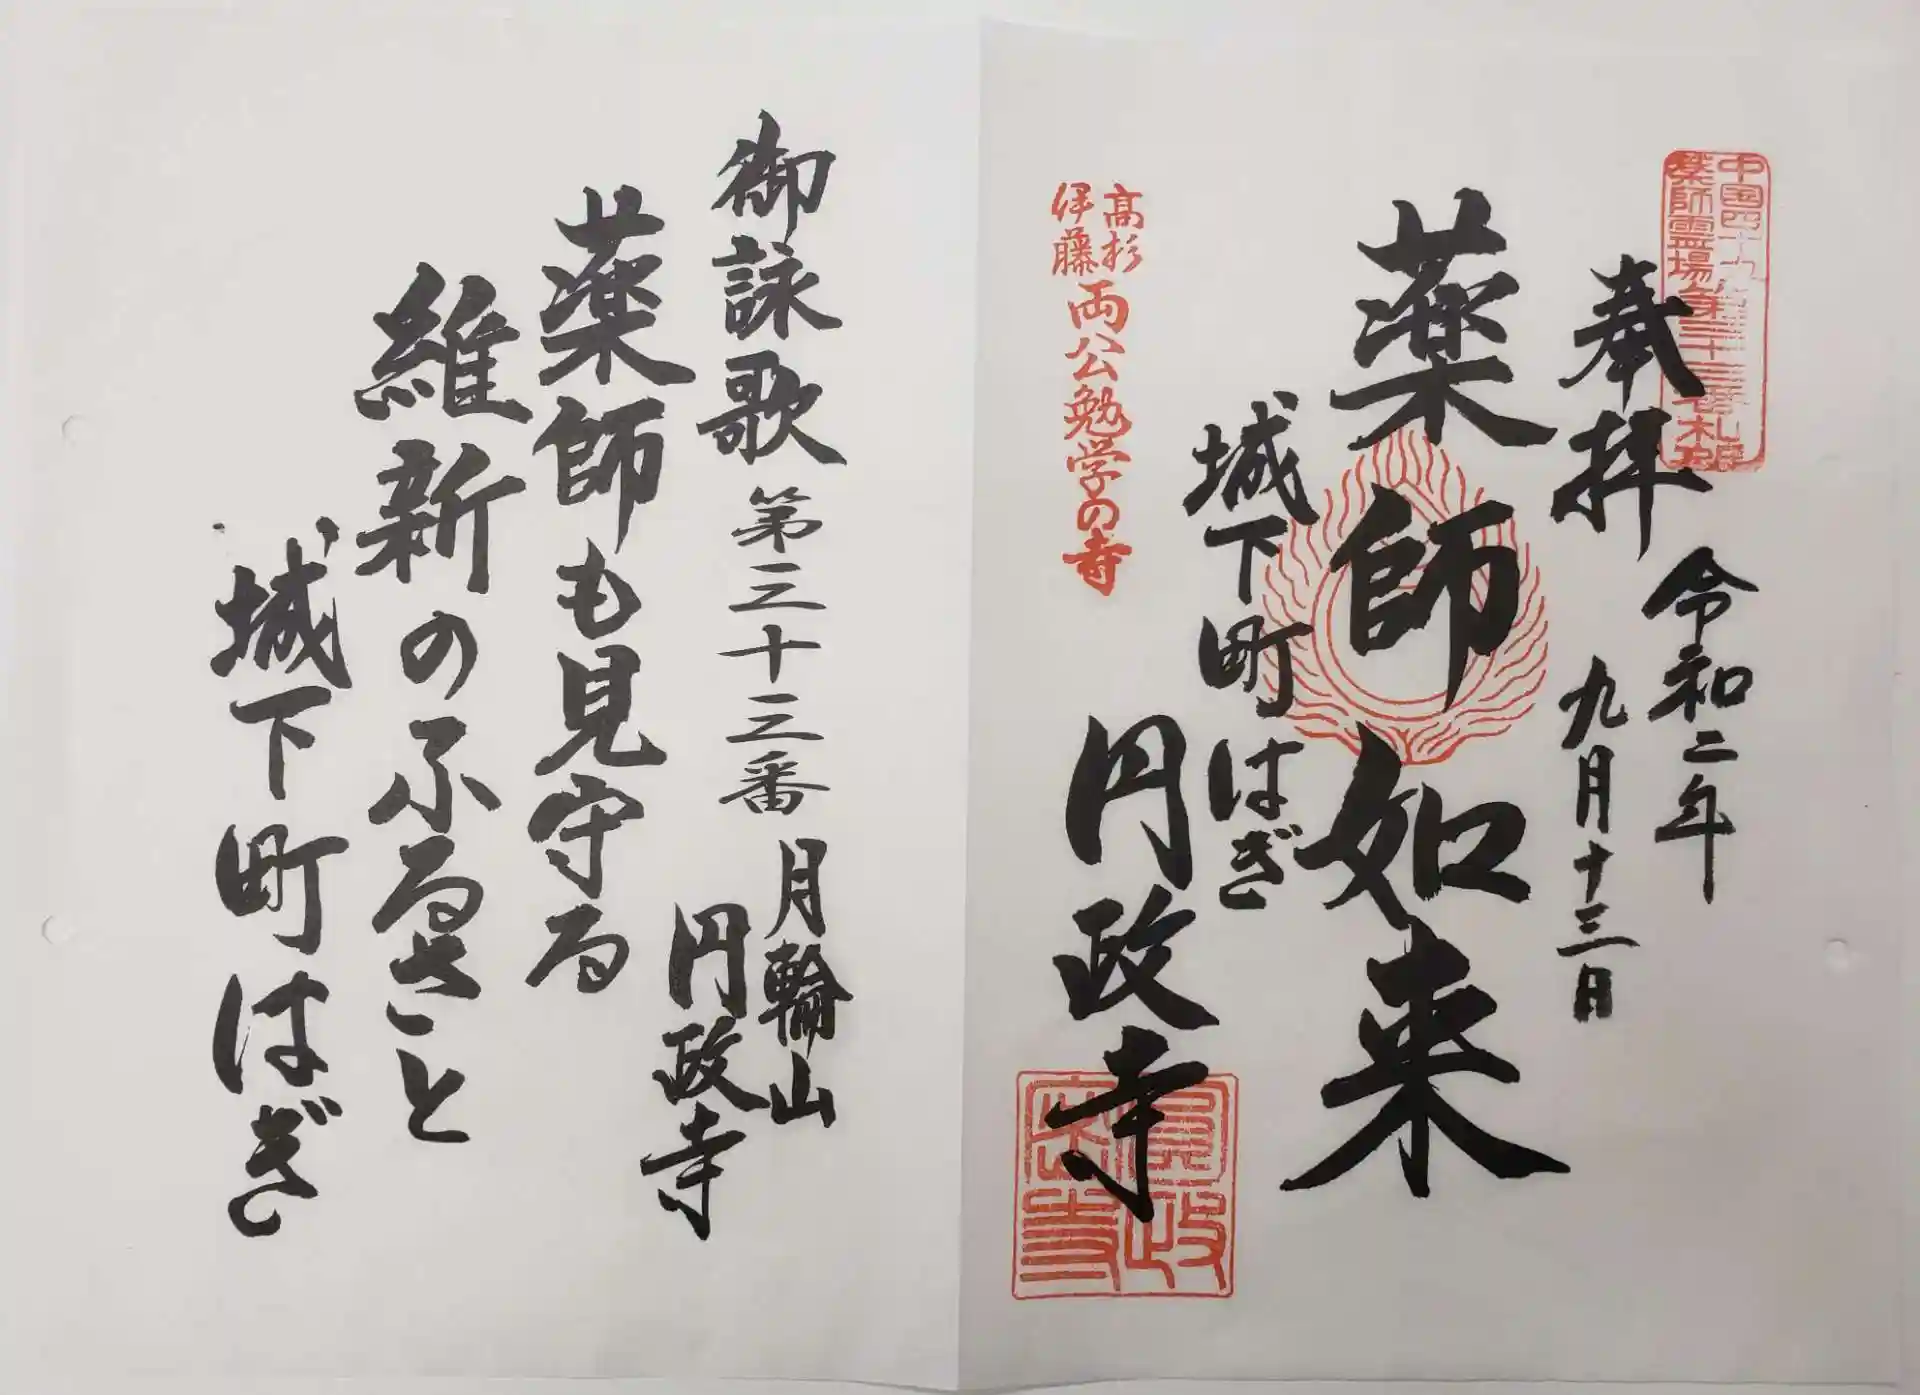 中国四十九
薬師霊場第三十三番札所
奉拝
令和二年
九月十三日
薬師如来
城下町はぎ
円政寺
高杉
伊藤
両公勉学の寺
御詠歌 第三十三番
月輪山
円政寺
薬師も見守る
維新のふるさと
城下町はぎ